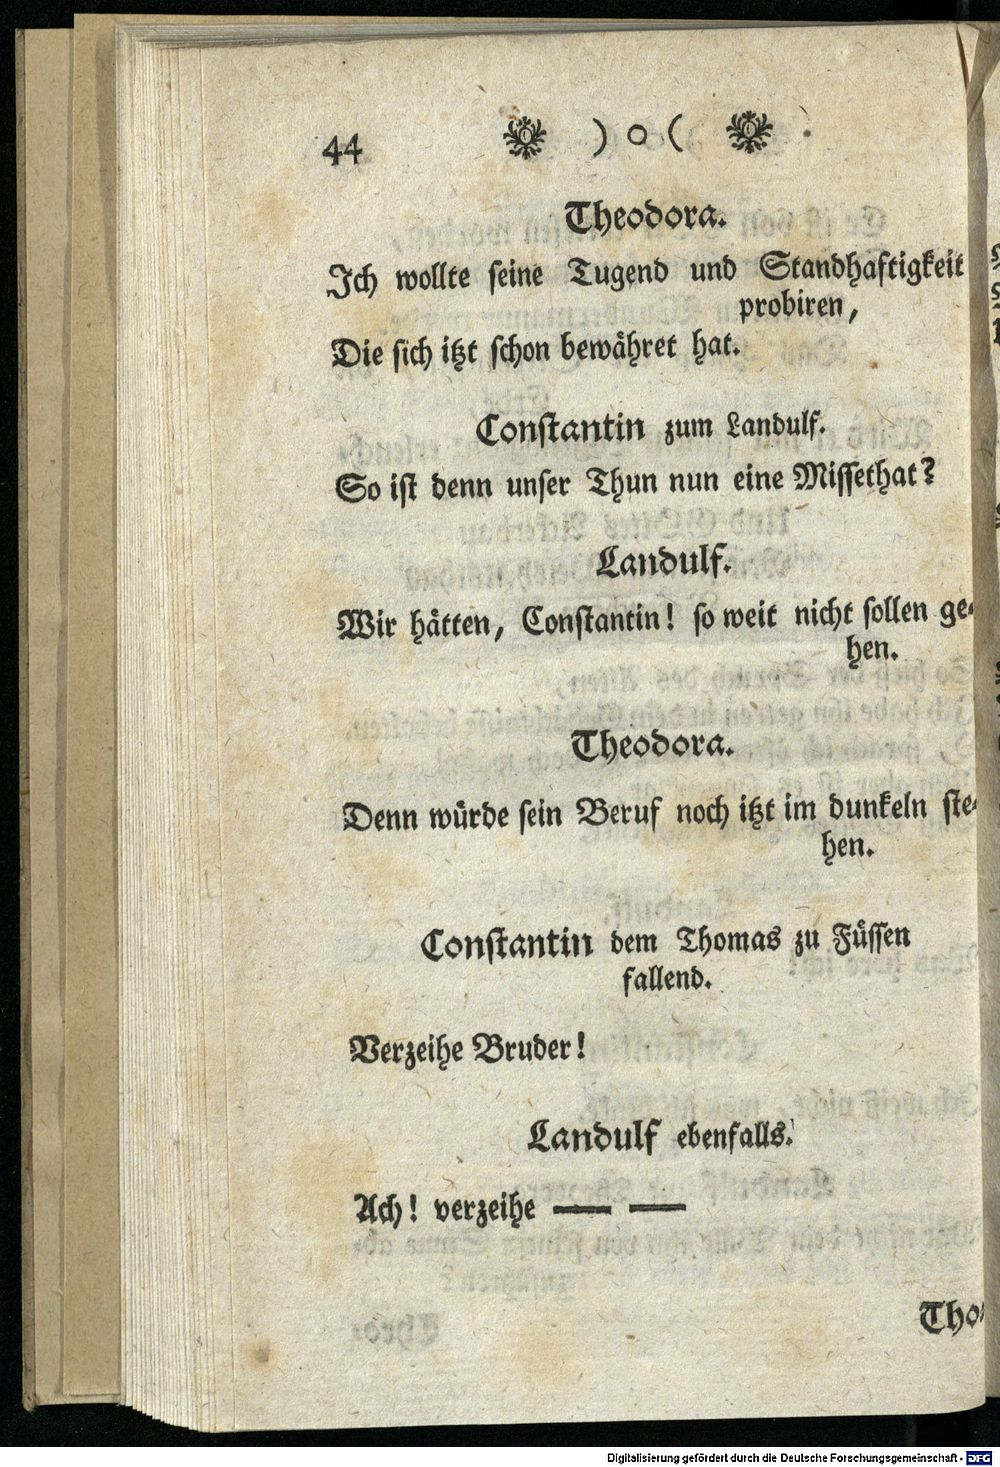 44 ) o (
Theodora.
Ich wollte seine Tugend und Standhaftigkeit
probiren,
Die sich itzt schon bewähret hat.
Constantin zum Landulf.
So ist denn unser Thun nun eine Missethat?
Landulf.
Wir hätten, Constantin! so weit nicht sollen ge-
hen.
Theodora.
Denn würde sein Beruf noch itzt im dunkeln ste-
hen.
Constantin dem Thomas zu Füssen
fallend.
Verzeihe Bruder!
Landulf ebenfalls.
Ach! verzeihe — —
Tho-
Digitalisierung gefördert durch die Deutsche Forschungsgemeinschaft - DFG